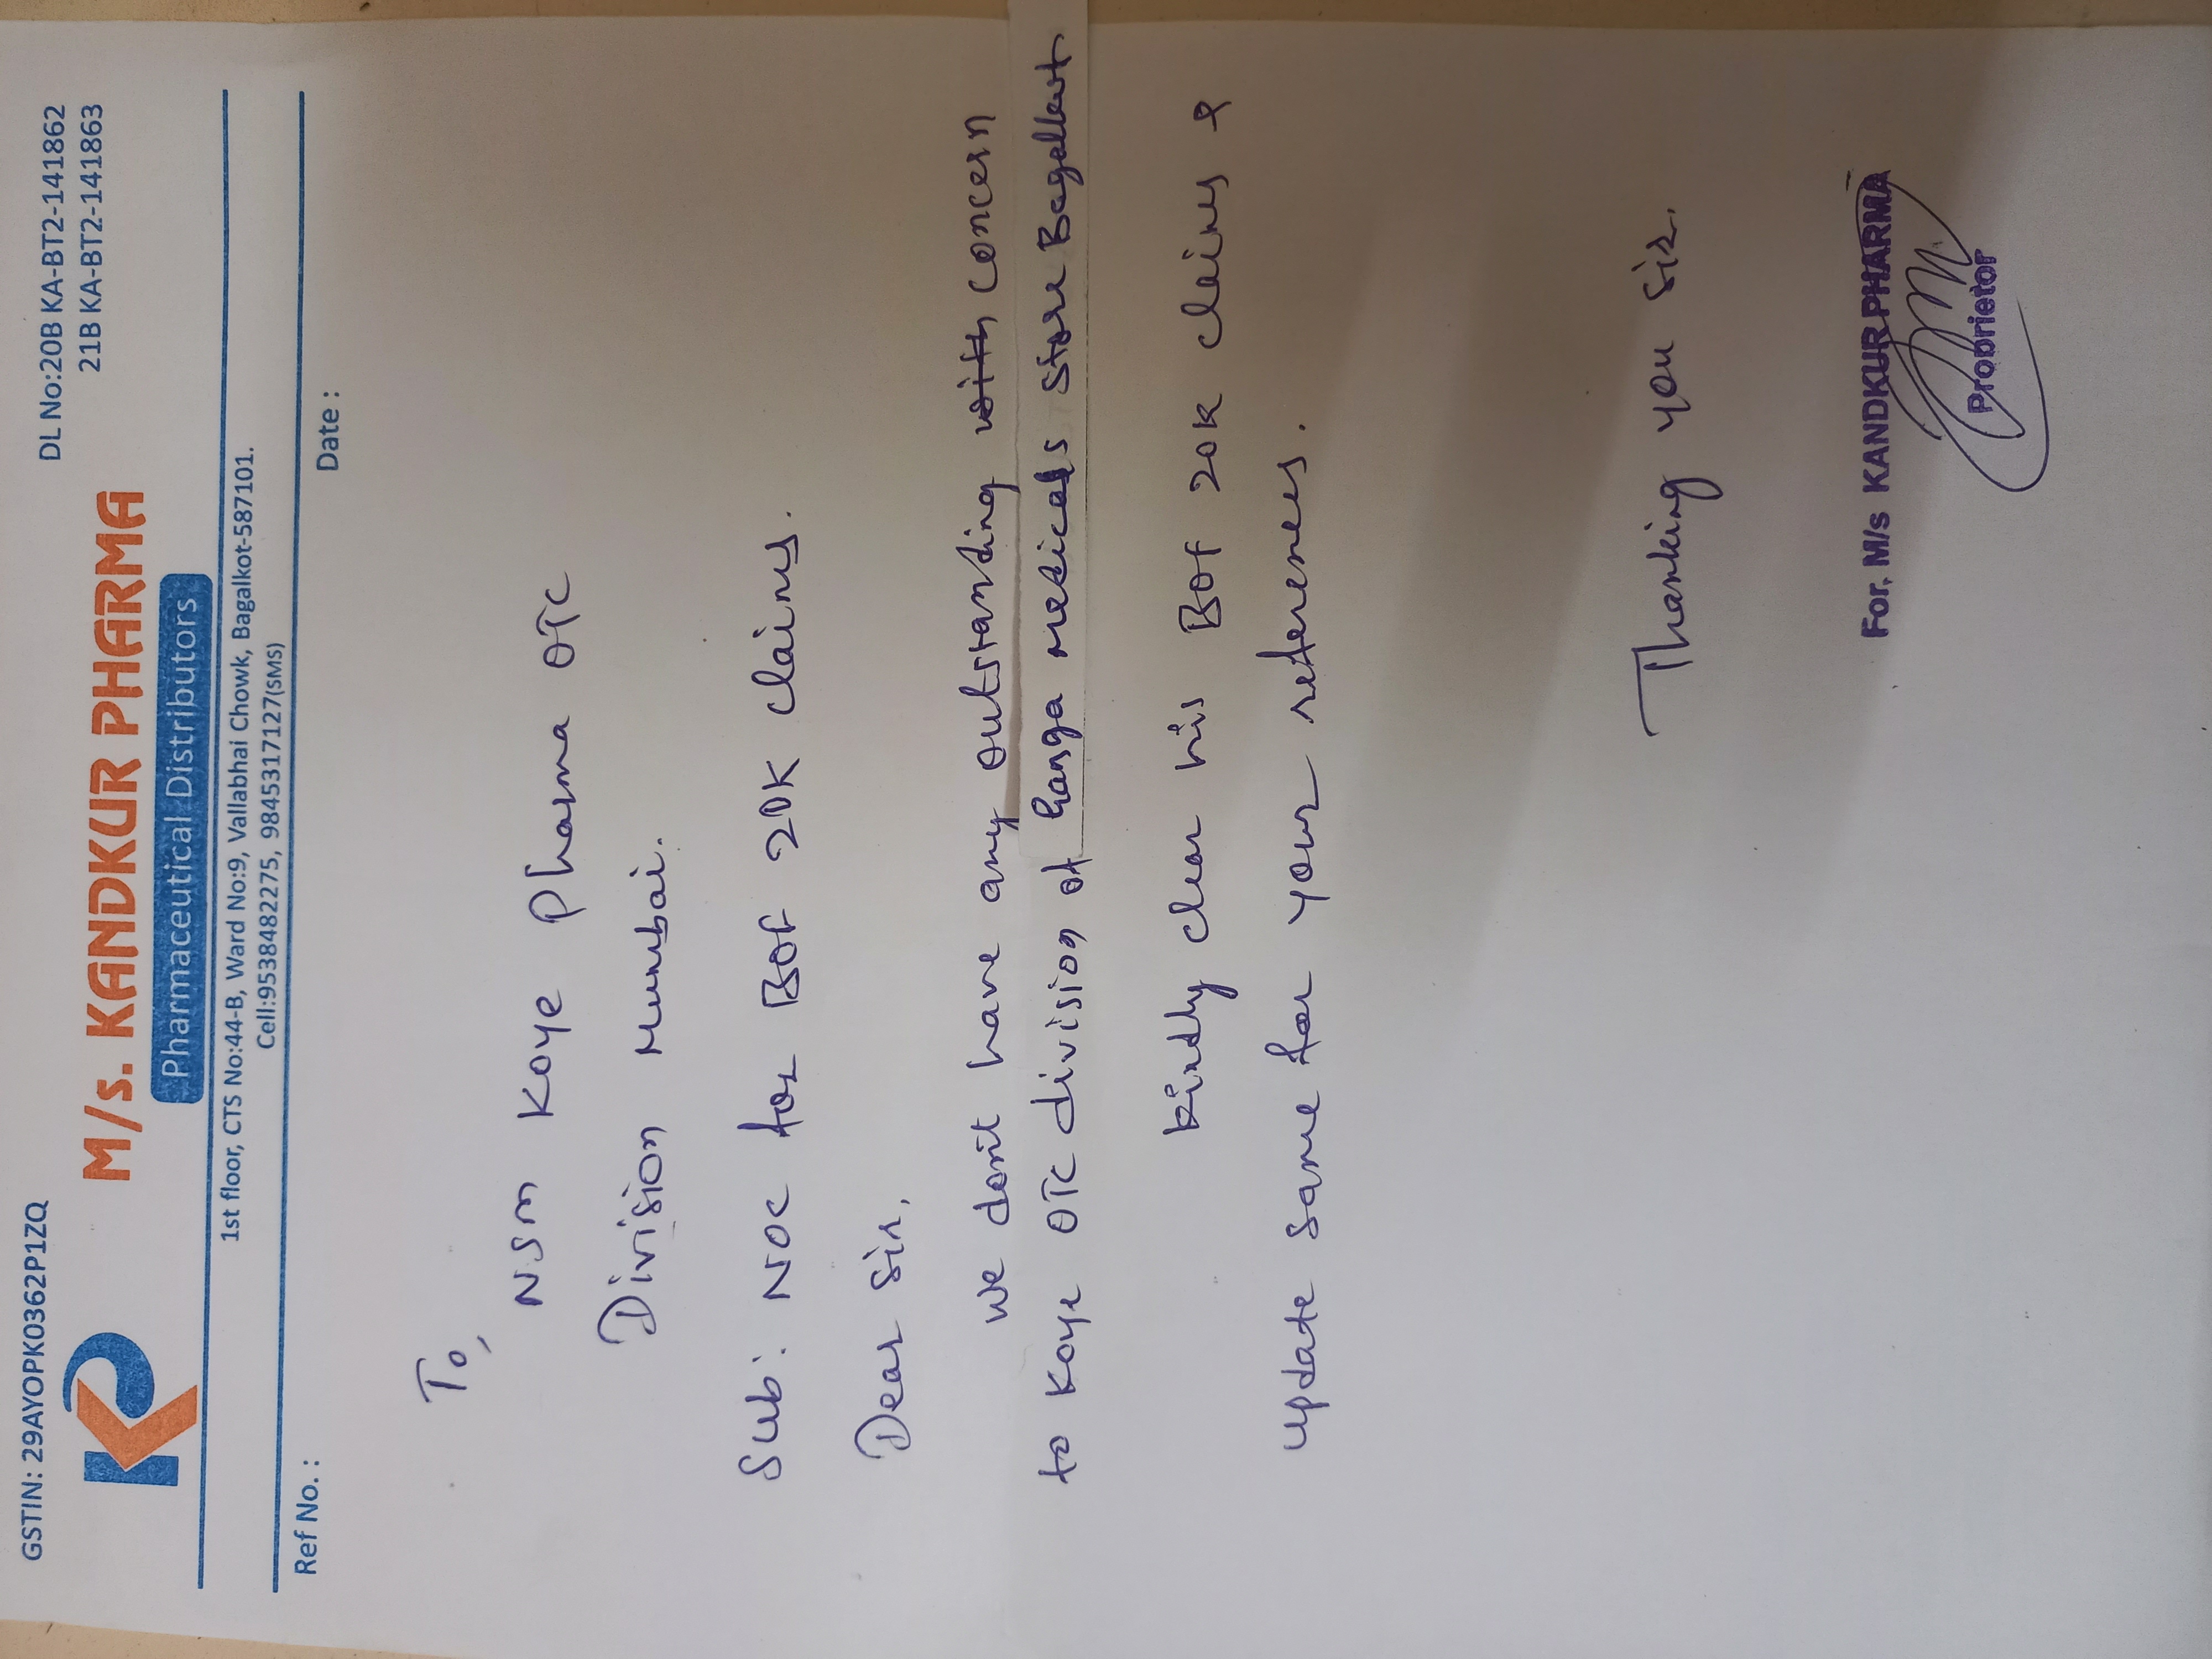 GSTIN: 29AYOPK0362P1ZQ
DL No:20B KA-BT2-141862
21B KA-BT2-141863
M/s. KANDKUR PHARMA
Pharmaceutical Distributors
1st floor, CTS No:44-B, Ward No:9, Vallabhai Chowk, Bagalkot-587101.
Cell:9538482275, 9845317127(SMS)
Ref No. :
Date :
To,
NSM Koye Pharma OTC
Division Mumbai.
Sub: NOC for BOF 20K claims.
Dear Sir,
We don't have any outstanding with concern
to Koye OTC division of Ranga medicals store Bagalkot
kindly clear his BOF 20K claims &
update same for your referenes.
Thanking you Sir.
For, M/s KANDKUR PHARMA
Proprietor